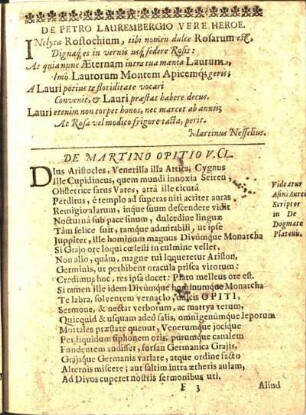 DE PETRO LAUREMBERGIO VERE HEROE.
INclyta Rostochium, tibi nomen dulce Rosarum est,
Dignaq; es in vernis usq; sedere Rosis:
At quia nunc Æternam intra tua mœnia Laurum,
Imò Laurorum Montem Apicemq; geris,
A Lauri potius te floriditate vocari
Convenit, & Lauri præstat habere decus.
Lauri etenim non torpet honos, nec marcet ab annis;
At Rosa vel modico frigore tacta, perit.
Martinus Nesselius.
DE MARTINO OPITIO V. CL.
DIus Aristocles, Venerilla illa Attica, Cygnus
Ille Cupidineus, quem mundi innoxia Seiren,
Obstetrice satus Vates, atra ille cicuta
Perditus, è templo ad superas niti aciter auras
Remigio alarum, inque suum descendere vidit
Nocturna sub pace sinum, dulcedine linguæ
Tàm felice suit, tamque admirabili, ut ipse
Juppiter, ille hominum magnus Divûmque Monarcha
Si Grajo ore loqui cœlesti in culmine vellet,
Non alio, quàm, magne tui loqueretur Ariston,
Germinis, ut perhibent oracula prisca virorum.
Credimus; hoc, res ipsa docet: Phœbo melius ore est.
Si tamen ille idem Divûmque hominumque Monarcha
Te labra, solventem vernaclo, dulcis OPITI,
Sermone, & nectier verborum, ac martya rerum,
Quicquid & usquam aded salis, omnigenûmque leporum
Mortales præstate queunt, Venerumque jocique
Per liquidum siphonem oris, purumque canalem
Fundentem audisset, forsan Germanica Grajis,
Grajsque Germanis varlare, atque ordine facto
Alternis miscere; aut saltim intra ætheris aulam,
Ad Divos cuperet nostris sermonibus uti,
F 3 Aliud
Videatur
Asini Aurei
Scriptor
in De
Dogmate
Platonis.